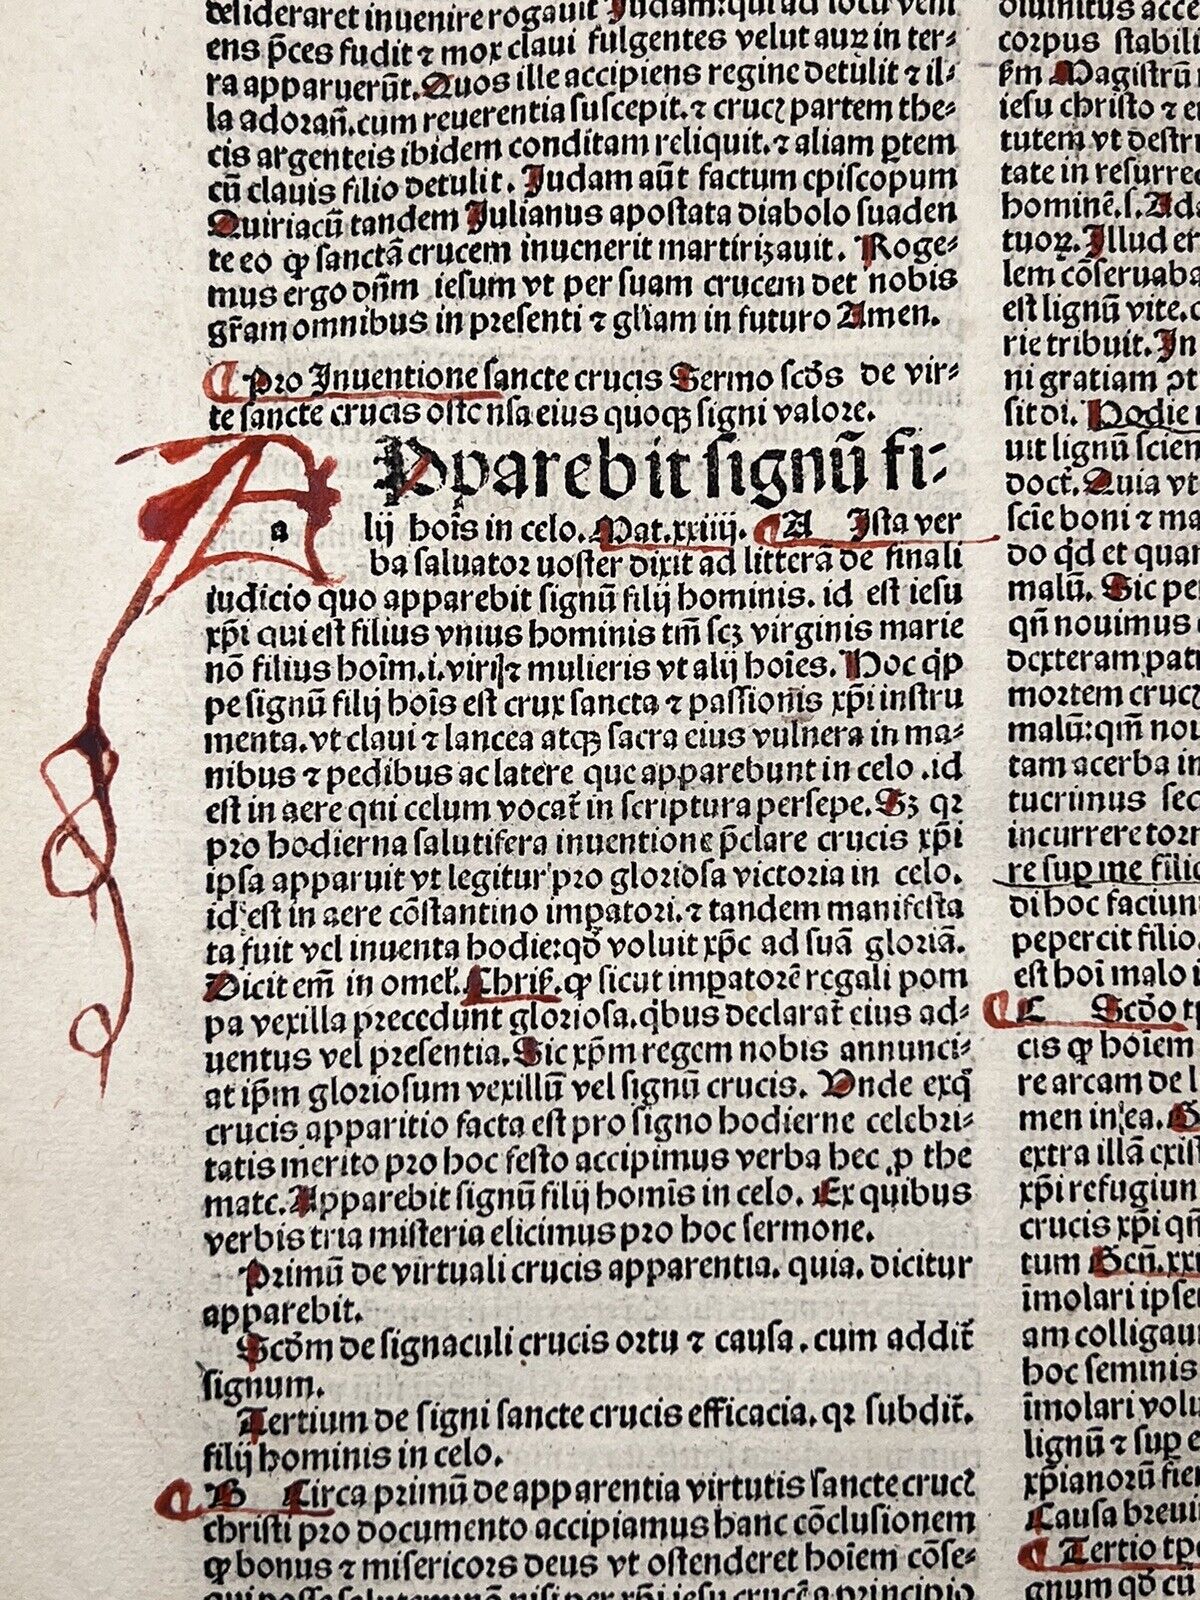 desideraret inuenire rogauit Judam: qui ad locū veni
ens p̄ces fudit ⁊ mox claui fulgentes velut auꝝ in ter⸗
ra apparuerūt. Quos ille accipiens regine detulit ⁊ il⸗
la adorañ. cum reuerentia suscepit. ⁊ crucꝭ partem the⸗
cis argenteis ibidem conditam reliquit. ⁊ aliam ꝑtem
cū clauis filio detulit. Judam aūt factum episcopum
Quiriacū tandem Julianus apostata diabolo suaden
te eo ꝙ sanctā crucem inuenerit martirizauit. Roge⸗
mus ergo dn̄m iesum vt per suam crucem det nobis
gr̄am omnibus in presenti ⁊ gl̄iam in futuro Amen.
¶ Pro Inuentione sancte crucis Sermo scd̄s de vir⸗
te sancte crucis ostensa eius quoqꝫ signi valore.
APparebit signū fi⸗
a
lij hoīs in celo. Mat. xxiiij. ¶ A Ista ver
ba saluator noster dixit ad litterā de finali
iudicio quo apparebit signū filij hominis. id est iesu
xp̄i qui est filius vnius hominis tm̄ scꝫ virginis marie
nō filius hoīm. i. viri ⁊ mulieris vt alij hoīes. Hoc q̄p
pe signū filij hoīs est crux sancta ⁊ passionis xp̄i instru
menta. vt claui ⁊ lancea atqꝫ sacra eius vulnera in ma⸗
nibus ⁊ pedibus ac latere que apparebunt in celo. id
est in aere qui celum vocat̄ in scriptura persepe. Sꝫ qꝛ
pro hodierna salutifera inuentione p̄clare crucis xp̄i
ipsa apparuit vt legitur pro gloriosa victoria in celo.
id est in aere cōstantino impatori. ⁊ tandem manifesta
ta fuit vel inuenta hodie: qd̄ voluit xp̄c ad suā gloriā.
Dicit em̄ in omel̄. Chris̄. ꝙ sicut imꝑatorē regali pom
pa vexilla precedunt gloriosa. q̄bus declarat̄ eius ad⸗
uentus vel presentia. Sic xp̄m regem nobis annunci⸗
at ip̄m gloriosum vexillū vel signū crucis. Vnde exq̄
crucis apparitio facta est pro signo hodierne celebri⸗
tatis merito pro hoc festo accipimus verba hec ꝓ the
mate. Apparebit signū filij homīs in celo. Ex quibus
verbis tria misteria elicimus pro hoc sermone.
Primū de virtuali crucis apparentia. quia. dicitur
apparebit.
Scd̄m de signaculi crucis ortu ⁊ causa. cum addit̄
signum.
Tertium de signi sancte crucis efficacia. qꝛ subdit̄.
filij hominis in celo.
¶ B Circa primū de apparentia virtutis sancte crucꝭ
christi pro documento accipiamus hanc cōclusionem
ꝙ bonus ⁊ misericors deus vt ostenderet hoīem cōse⸗
corpus stabili
Magistrū
iesu christo ⁊
tutem vt destr
tate in resurrec
hominē. s. Ada
tuoꝝ. Illud et
lem cōseruaba
est lignū vite.
rie tribuit. In
ni gratiam
sit di. Hodie
uit lignū scien
doct̄. Quia vt
scīe boni ⁊ ma
do qd̄ et quan
malū. Sic pe
qn̄ nouimus
dexteram patr
mortem crucꝭ
malū: qm̄ nou
tam acerba in
tucrimus sec
incurrere torm
re suꝑ me filie
di hoc faciun
pepercit filio.
est hoī malo
¶ C Scd̄o
cis ꝙ hoīem
re arcam de l
men in ea.
extra illā exis
xp̄i refugiun
crucis xp̄i qn̄
tum Gen̄. xx
īmolari ipse
am colligau
hoc seminis
īmolari volu
lignū ⁊ suꝑ
xp̄ianorū fie
Causa breui
¶ Tertio
gnum qd̄ cū